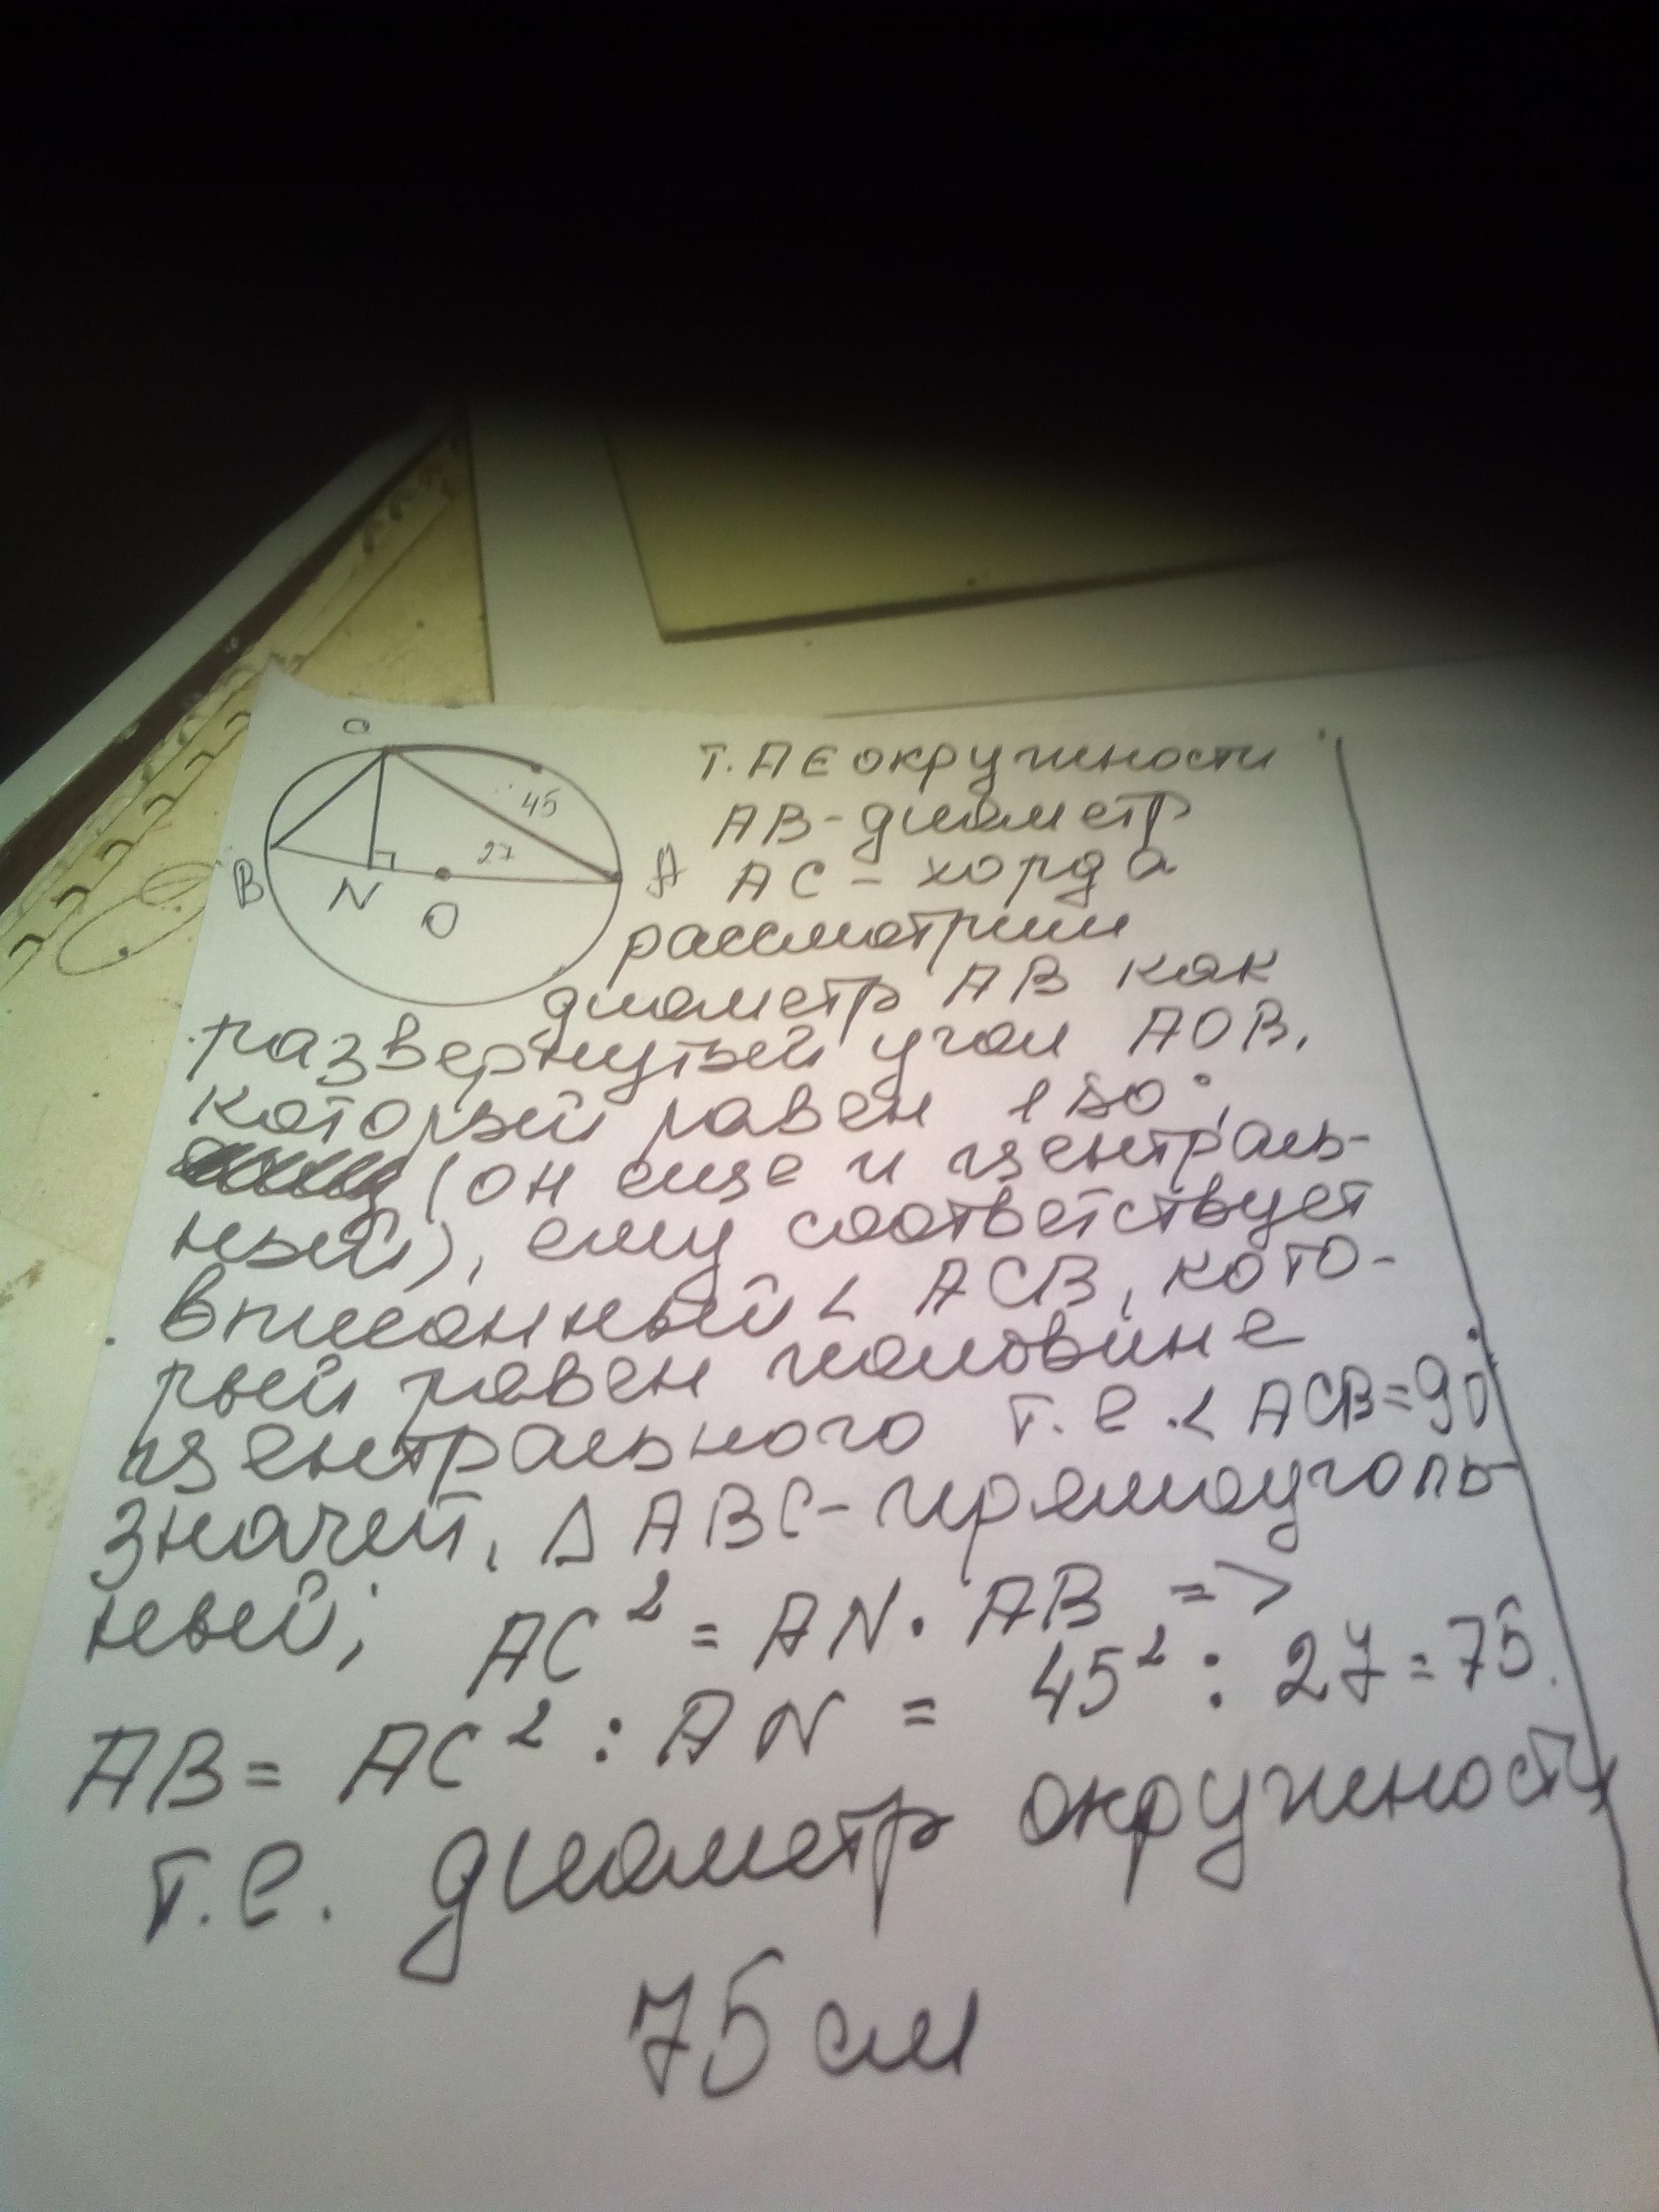 C
45
27
B
N
O
A
т. А ∈ окружности
АВ - диаметр
АС - хорда
рассмотрим
диаметр АВ как
развернутый угол АОВ,
который равен 180°,
(он еще и централь-
ный), ему соответствует
вписанный < АСВ, кото-
рый равен половине
центрального т.е. < АСВ=90
значит, Δ АВС - прямоуголь
ный; АС² = AN · АВ =>
АВ = АС² : AN = 45² : 27 = 75.
т.е. диаметр окружности
75 см